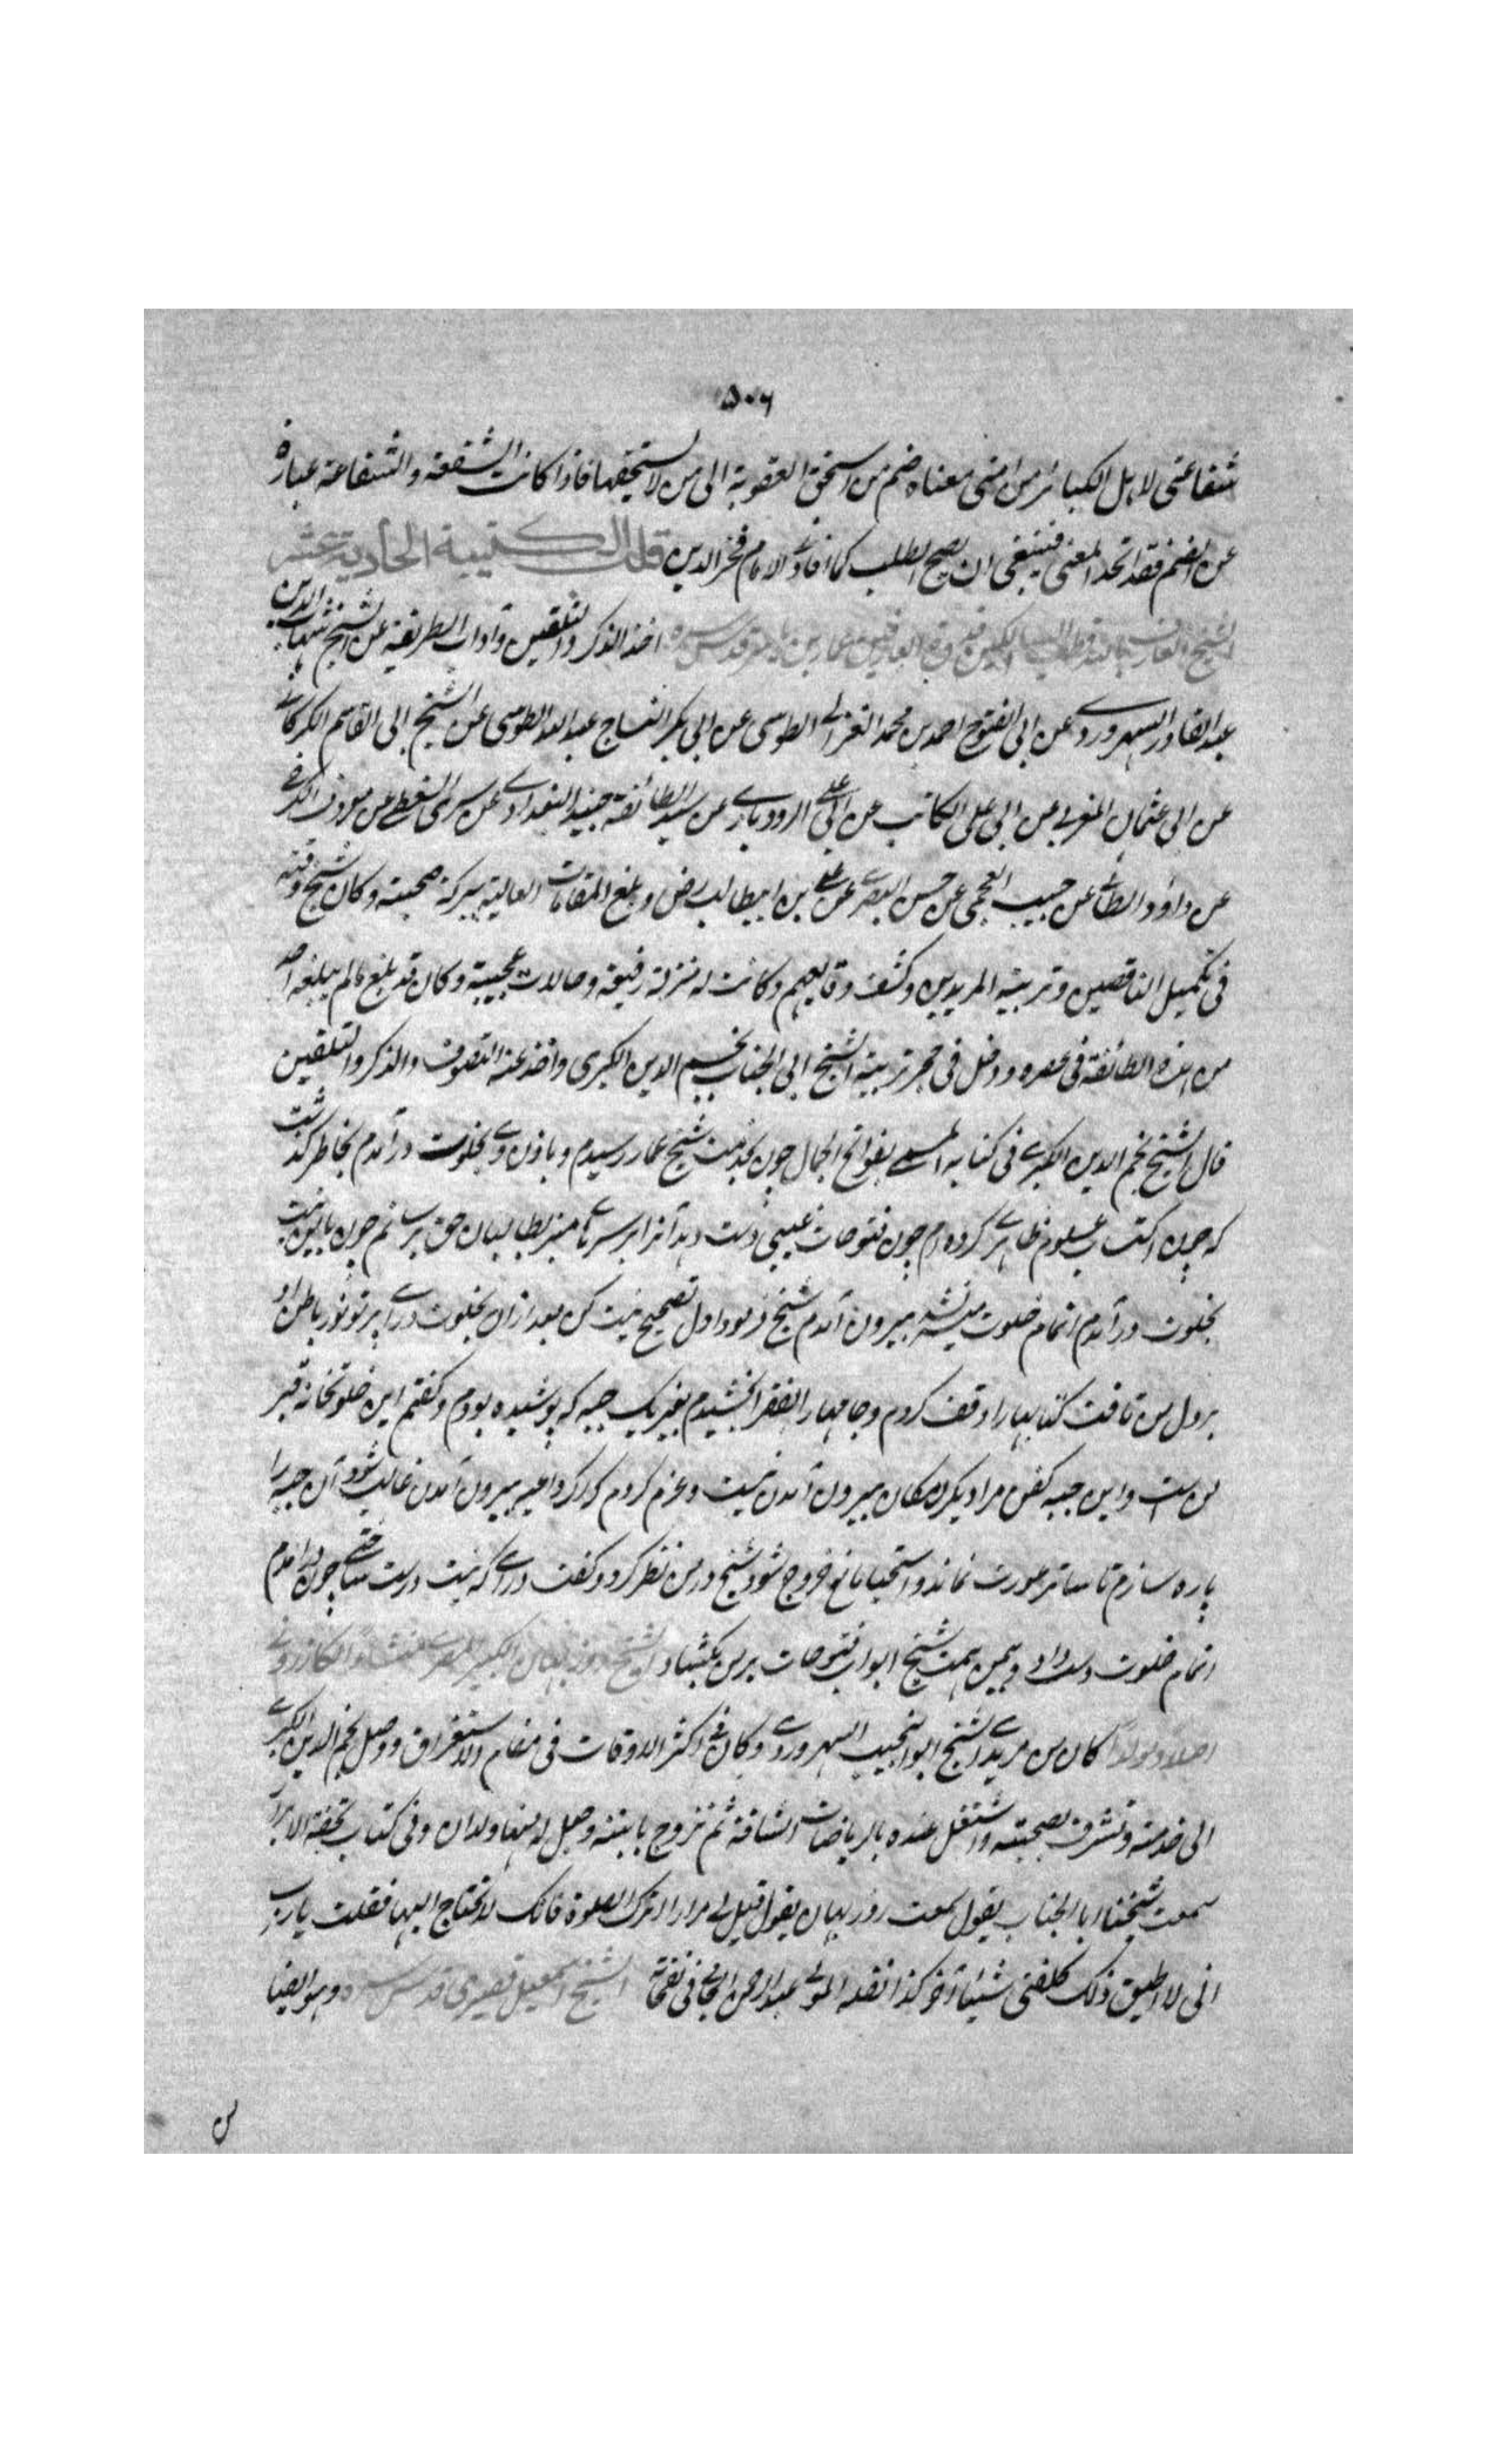 ۵۰۶
شفاعتی لاهل الکبائر من امتی معناه ضم من استحق العقوبة الی من لا یستحقها فاذا کانت الشفعة والشفاعة عبارة
عن الضم فقد اتحد المعنی فینبغی ان یصح الطلب کما افاده الامام فخر الدین قلت الکتیبة الحادیة عشر
الشیخ العارف بالله قطب السالکین عمار بن یاسر قدس سره اخذ الذکر والتلقین وآداب الطریقة عن الشیخ شهاب الدین
عبد القادر السهروردی عن ابی الفتوح احمد بن محمد الغزالی الطوسی عن ابی بکر النساج عبد الله الطوسی عن الشیخ ابی القاسم الکرکانی
عن ابی عثمان المغربی عن ابی علی الکاتب عن ابی علی الرودباری عن سید الطائفة جنید البغدادی عن سری السقطی عن معروف الکرخی
عن داؤد الطائی عن حبیب العجمی عن حسن البصری عن علی بن ابیطالب رض وبلغ المقامات العالیة ببرکة صحبته وکان شیخ وقته
فی تکمیل الناقصین وتربیة المریدین وکشف وقایعهم وکانت له منزلة رفیعة وحالات عجیبة وکان قد بلغ مالم یبلغه احد
من هذه الطائفة فی عصره ودخل فی حجر تربیته الشیخ ابی الجناب نجم الدین الکبری واخذ عنه التصوف والذکر والتلقین
قال الشیخ نجم الدین الکبری فی کتابه المسمی بفواتح الجمال چون بخدمت شیخ عمار رسیدم وباذن وی بخلوت درآمدم بخاطر گذشت
که چون اکتساب علوم ظاهری کرده‌ام چون فتوحات غیبی دست دهد آنرا بر سرهای منبر بطالبان حق برسانم چون باین نیت
بخلوت درآمدم اتمام خلوت میسر نشد بیرون آمدم شیخ فرمود اول تصحیح نیت کن بعد ازان بخلوت درای پرتو نور باطن او
بر دل من تافت کتابها را وقف کردم وجامها را بفقرا بخشیدم بغیر یک جبه که پوشیده بودم وگفتم این خلوتخانه قبر
من است واین جبه کفن مرا دیگر امکان بیرون آمدن نیست وعزم کردم که اگر داعیه بیرون آمدن غالب شود آن جبه را
پاره سازم تا ساتر عورت نماند واستحیا مانع خروج شود شیخ در من نظر کرد وگفت درای که نیت درست ساختی چون درآمدم
اتمام خلوت دست داد وبیمن همت شیخ ابواب فتوحات بر من بگشاد الشیخ روزبهان الکبیر المصری منشأ الکازرونی
اصلا ومولدا کان من مریدی الشیخ ابو النجیب السهروردی وکان فی اکثر الاوقات فی مقام الاستغراق ووصل نجم الدین الکبری
الی خدمته وتشرف بصحبته واشتغل عنده بالریاضات الشاقة ثم تزوج بابنته وحصل له منها ولدان وفی کتاب تحفة الابرار
سمعت شیخنا ابا الجناب یقول سمعت روزبهان یقول قیل لی مرارا اترک الصلوة فانک لا تحتاج الیها فقلت یا رب
انی لا اطیق ذلک کلفنی شیئا آخر کذا نقله المولی عبد الرحمن الجامی فی نفحاته الشیخ اسمعیل قصیری قدس سره وهو ایضا
من